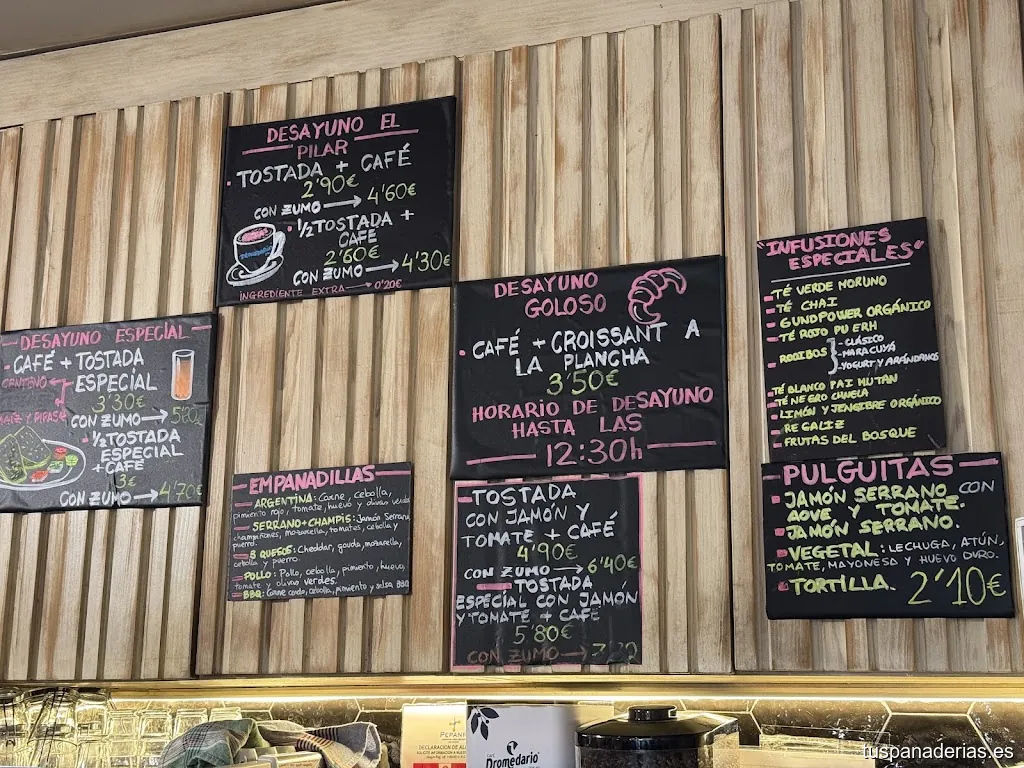 DESAYUNO EL
PILAR
TOSTADA + CAFÉ
2'90€
CON ZUMO → 4'60€
1/2 TOSTADA +
CAFÉ
2'60€
CON ZUMO → 4'30€
INGREDIENTE EXTRA → 0'20€
DESAYUNO ESPECIAL
CAFÉ + TOSTADA
CENTENO
ESPECIAL
3'30€
MAÍZ Y PIPAS
CON ZUMO →
1/2 TOSTADA
ESPECIAL
+ CAFÉ
3€
CON ZUMO → 4'70€
DESAYUNO
GOLOSO
CAFÉ + CROISSANT A
LA PLANCHA
3'50€
HORARIO DE DESAYUNO
HASTA LAS
12:30h
EMPANADILLAS
ARGENTINA: Carne, cebolla,
pimiento rojo, tomate, huevo y olivas verdes
SERRANO+CHAMPIS: Jamón Serrano,
champiñones, mozarella, tomates, cebolla y
puerro.
3 QUESOS: Cheddar, gouda, mozarella,
cebolla y puerro.
POLLO: Pollo, cebolla, pimiento, huevo,
tomate y olivas verdes.
BBQ: Carne cerdo, cebolla, pimiento y salsa BBQ
TOSTADA
CON JAMÓN Y
TOMATE + CAFÉ
4'90€
CON ZUMO → 6'40€
TOSTADA
ESPECÍAL CON JAMÓN
Y TOMATE + CAFÉ
5'80€
CON ZUMO →
"INFUSIONES
ESPECIALES"
TÉ VERDE MORUNO
TÉ CHAI
GUNDPOWER ORGÁNICO
TÉ ROJO PU ERH
ROOIBOS
- CLÁSICO
- MARACUYÁ
- YOGURT Y ARÁNDANOS
TÉ BLANCO PAI MUTAN
TÉ NEGRO CANELA
LIMÓN Y JENGIBRE ORGÁNICO
REGALIZ
FRUTAS DEL BOSQUE
PULGUITAS
JAMÓN SERRANO CON
AOVE Y TOMATE.
JAMÓN SERRANO.
VEGETAL: LECHUGA, ATÚN,
TOMATE, MAYONESA Y HUEVO DURO.
TORTILLA. 2'10€
DECLARACIÓN DE
Dromedario
tuspanaderias.es